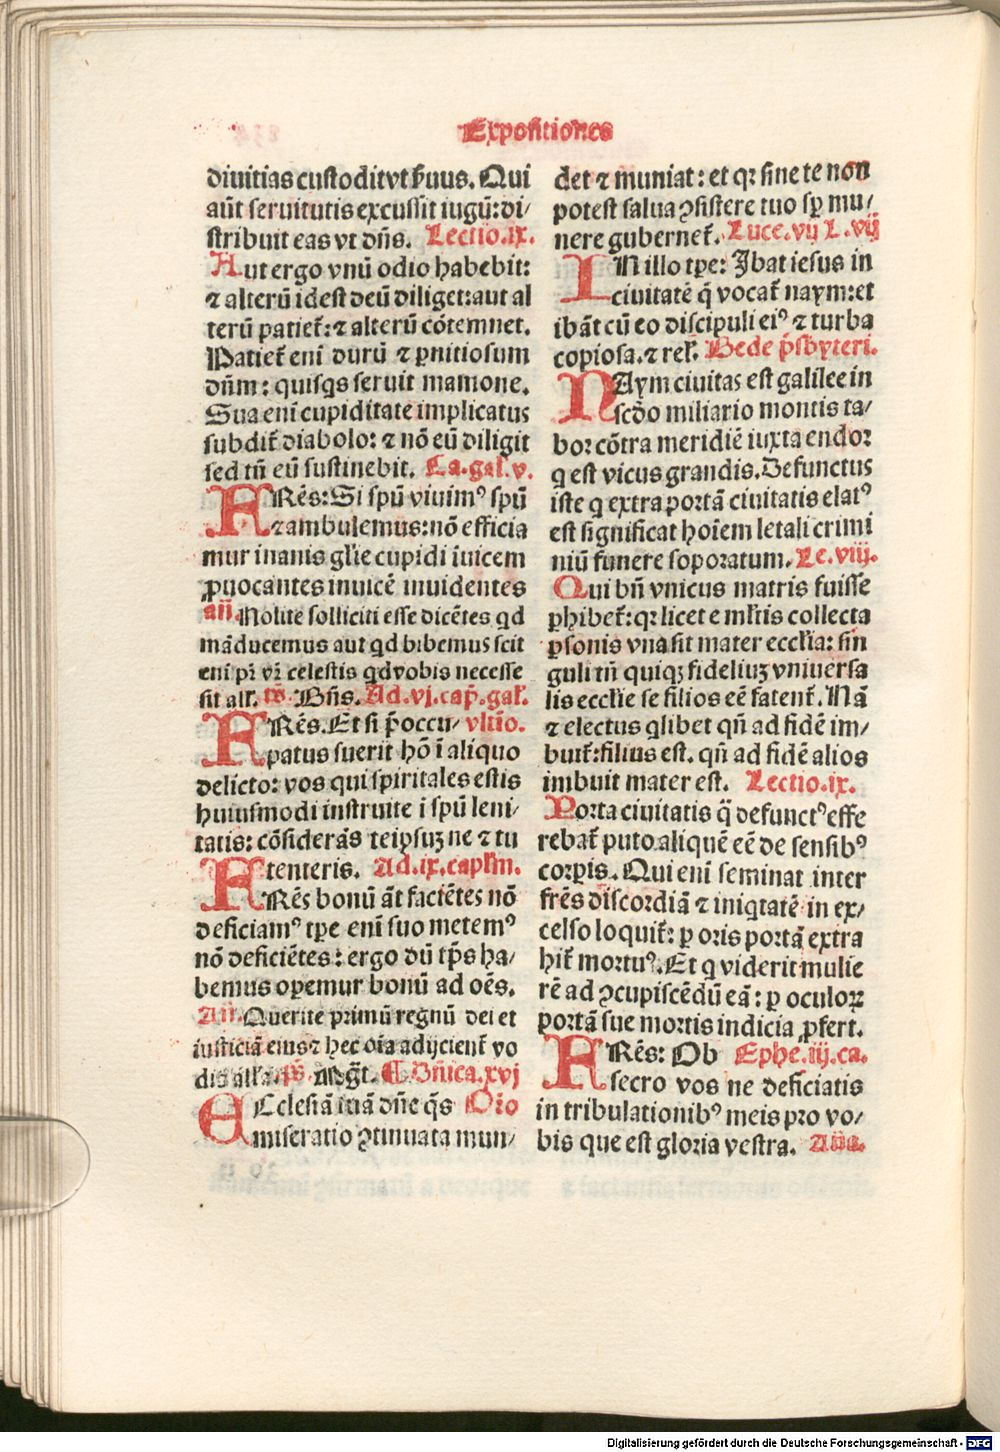 Expositiones
diuitias custodit vt ẜuus. Qui
aūt seruitutis excussit iugū: di/
stribuit eas vt dn̄s. Lectio.ix.
Aut ergo vnū odio habebit:
⁊ alterū idest deū diliget: aut al
terū patiet᷑: ⁊ alterū cōtemnet.
Patiet᷑ enī durū ⁊ ꝑnitiosum
dn̄m: quisq̄s seruit mamone.
Sua enī cupiditate implicatus
subdit᷑ diabolo: ⁊ nō eū diligit
sed tn̄ eū sustinebit. Ca.gal᷑.v.
FRēs: Si spū viuimꝰ spū
⁊ ambulemus: nō efficia
mur inanis gl̄ie cupidi īuicem
ꝓuocantes inuicē inuidentes
an̄. Nolite solliciti esse dicētes qd
māducemus aut qd bibemus scit
enī pr̄ vr̄ celestis qd vobis necesse
sit all᷑. v̄s. Bn̄s. Ad.vj.cap̄.gal᷑.
FRēs. Et si p̄occu/ vltīo.
patus fuerit hō ī aliquo
delicto: vos qui spiritales estis
huiusmodi instruite ī spū leni/
tatis: cōsiderās teipsuꝫ ne ⁊ tu
tenteris. Ad.ix.capl̄m.
FRēs bonū āt faciētes nō
deficiamꝰ tꝑe enī suo metemꝰ
nō deficiētes: ergo dū tp̄s ha/
bemus oꝑemur bonū ad oēs.
An̄. Querite primū regnū dei et
iusticiā eius ⁊ hec oīa adijcient᷑ vo
bis all᷑a. v̄s. Mḡt. ¶ Dn̄ica.xvj
ECclesiā tuā dn̄e q̄s Or̄o
miseratio ꝯtinuata mun/
det ⁊ muniat: et qꝛ sine te non
potest salua ꝯsistere tuo sꝑ mu/
nere gubernet᷑. Luce.vij L.vij
IN illo tꝑe: Ibat iesus in
ciuitatē q̄ vocat᷑ naym: et
ibāt cū eo discipuli eiꝰ ⁊ turba
copiosa. ⁊ rel᷑. Bede p̄sbyteri.
NAym ciuitas est galilee in
scd̄o miliario montis ta/
bor cōtra meridiē iuxta endor
q est vicus grandis. Defunctus
iste q extra portā ciuitatis elatꝰ
est significat hoīem letali crimi
niū funere soporatum. Le.viij.
Qui bn̄ vnicus matris fuisse
ꝑhibet᷑: qꝛ licet e mr̄is collecta
ꝑsonis vna sit mater eccl̄ia: sin
guli tn̄ quiqꝫ fideliuꝫ vniuersa
lis eccl̄ie se filios eē fatent᷑. Nā
⁊ electus qlibet qn̄ ad fidē im/
buit᷑: filius est. qn̄ ad fidē alios
imbuit mater est. Lectio.ix.
Porta ciuitatis q̄ defunctꝰ effe
rebat᷑ puto aliquē eē de sensibꝰ
corꝑis. Qui enī seminat inter
fr̄es discordiā ⁊ iniqtatē in ex/
celso loquit᷑: ꝑ oris portā extra
hit᷑ mortuꝰ. Et q viderit mulie
rē ad ꝯcupiscēdū eā: ꝑ oculoꝝ
portā sue mortis indicia ꝓfert.
FRēs: Ob Ephe.iij.ca.
secro vos ne deficiatis
in tribulationibꝰ meis pro vo/
bis que est gloria vestra. An̄a.
Digitalisierung gefördert durch die Deutsche Forschungsgemeinschaft - DFG